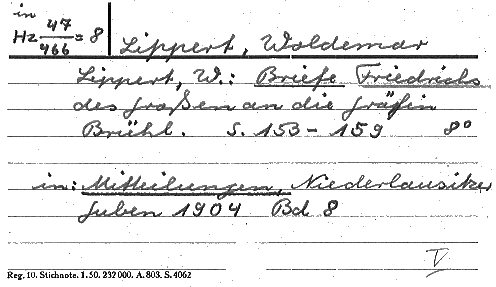 in
Hz 47/466 = 8
Lippert, Woldemar
Lippert, W.: Briefe Friedrichs
des Großen an die Gräfin
Brühl. S. 153-159 8°
in: Mitteilungen, Niederlausitzer
Guben 1904 Bd 8
V
Reg. 10. Stichnote. 1. 50. 232 000. A. 803. S. 4062